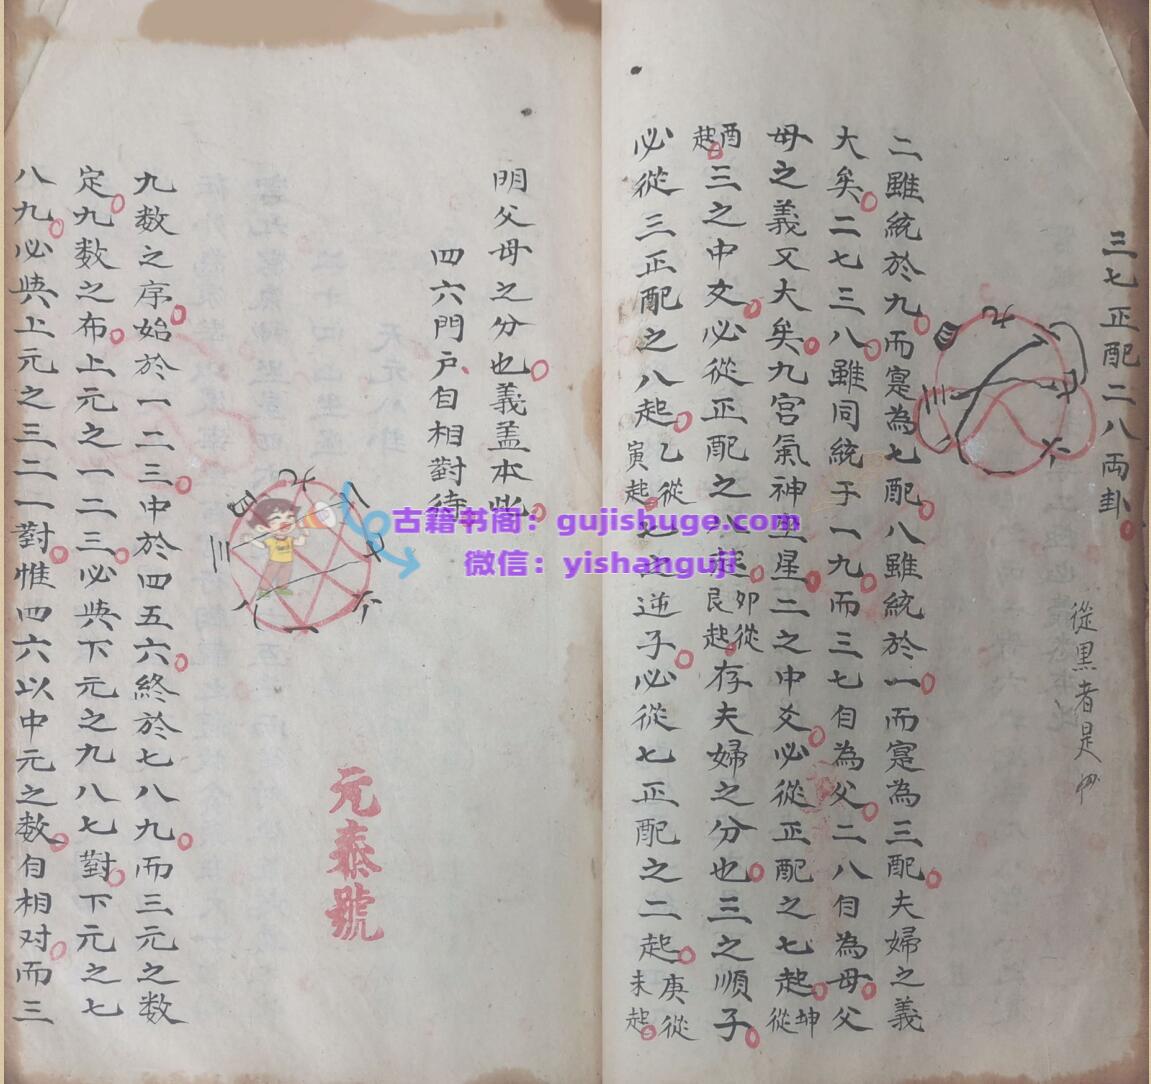 三七正配二八両卦
從黒者是
二雖統於九而寔為七配八雖統於一而寔為三配夫婦之義
大矣二七三八雖同統于一九而三七自為父二八自為母父
母之義又大矣九宮氣神坐星二之中爻必從正配之七起從坤
酉起三之中爻必從正配之八起卯從艮起存夫婦之分也三之順子
必從三正配之八起乙從寅起七之逆子必從七正配之二起庚從未起
明父母之分也義盖本此
四六門户自相對待
元泰號
九数之序始於一二三中於四五六終於七八九而三元之数
定九数之布上元之一二三必與下元之九八七對下元之七
八九必與上元之三二一對惟四六以中元之数自相对而三
古籍书阁：gujishuge.com
微信：yishanguji